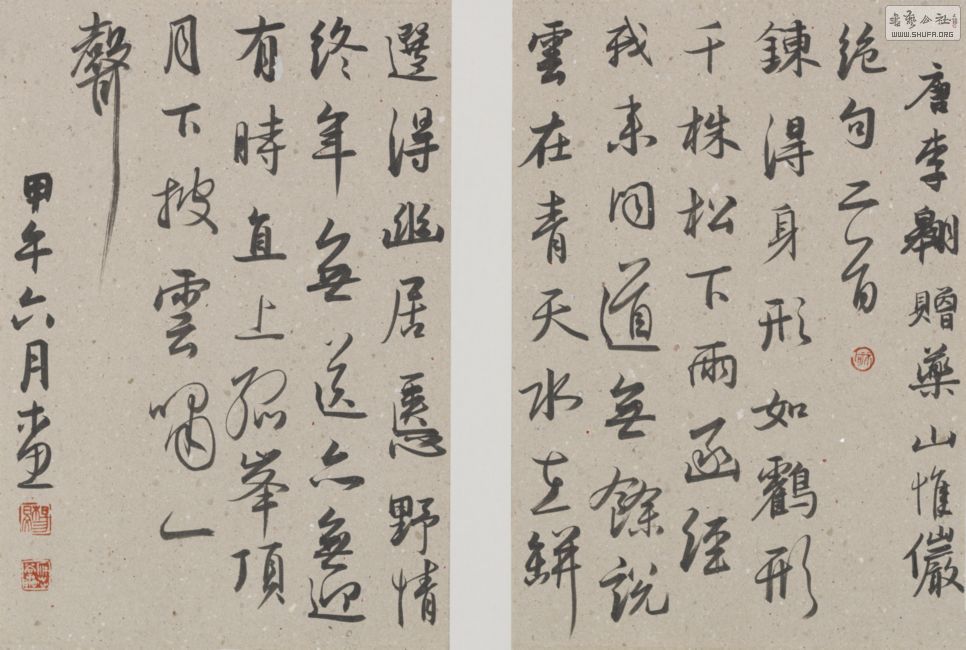 書藝公社
WWW.SHUFA.ORG
唐李翱贈藥山惟儼
絶句二首
鍊得身形如鸖形
千株松下兩函經
我来問道無餘說
雲在青天水在缾
選得幽居愜野情
終年無送亦無迎
有時直上孤峯頂
月下披雲嘯一
聲
甲午六月